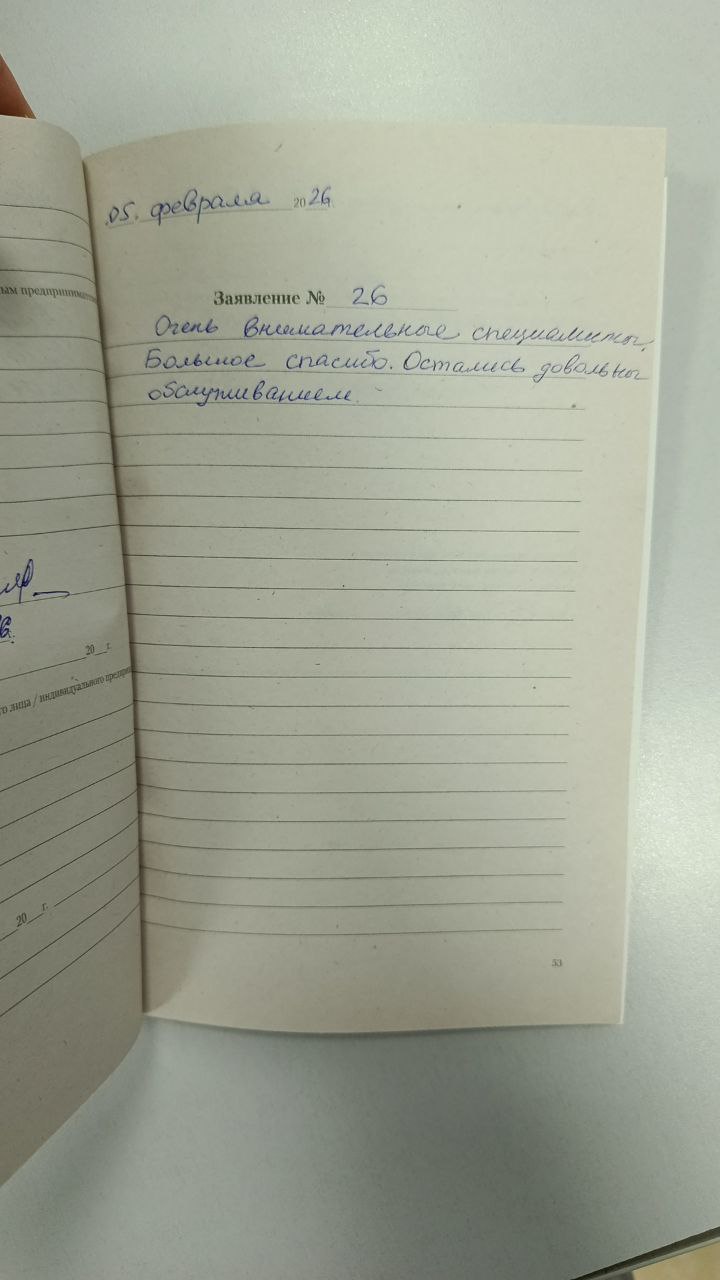 ым предпринимат
6.
20 г.
го лица / индивидуального предприн
20 г.
05. февраля 2026
Заявление № 26
Очень внимательные специалисты.
Большое спасибо. Остались довольны
обслуживанием.
53